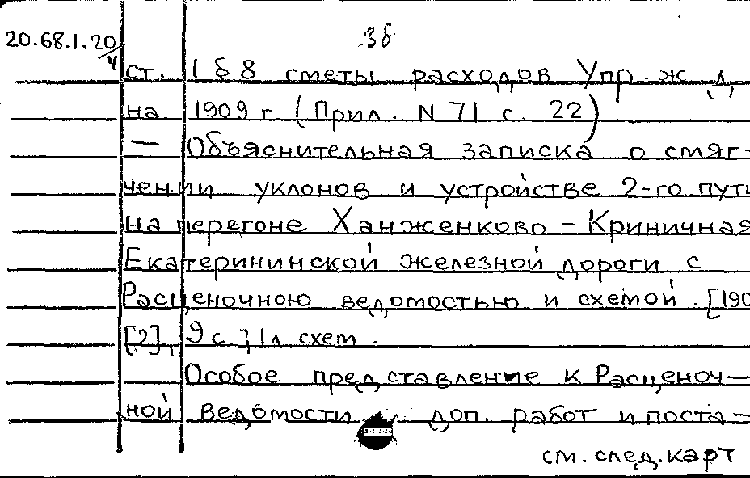 20.68.1.20/4
3б
ст. 1 § 8 сметы расходов Упр. ж. д.
на 1909 г. (Прил. N 71 с. 22)
— Объяснительная записка о смяг-
чении уклонов и устройстве 2-го пути
на перегоне Ханженково - Криничная
Екатерининской железной дороги с
Расценочною ведомостью и схемой. [190
[2], 9 с., 1 л. схем.
Особое представление к Расценоч-
ной ведомости доп. работ и поста-
см. след. карт